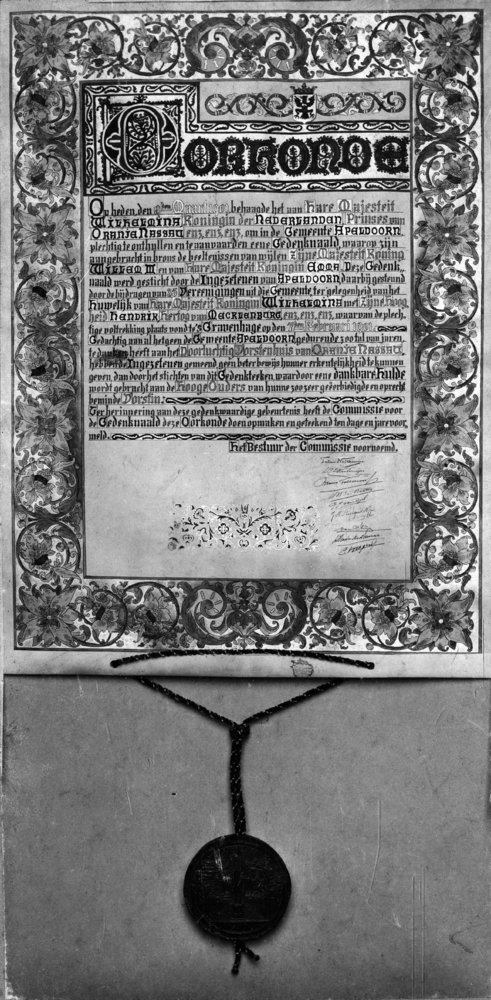 Oorkonde
Op heden, den October 1901 behaagde het aan Hare Majesteit
Wilhelmina Koningin der Nederlanden, Prinses van
Oranje Nassau enz. enz. enz. om in de Gemeente Apeldoorn,
plechtig te onthullen en te aanvaarden eene Gedenknaald, waarop zijn
aangebracht in brons de beeltenissen van wijlen Zijne Majesteit Koning
Willem III en van Hare Majesteit Koningin Emma. Deze Gedenk-
naald werd gesticht door de Ingezetenen van Apeldoorn daarbij gesteund
door de bijdragen van 25 Vereenigingen uit die Gemeente ter gelegenheid van het
Huwelijk van Hare Majesteit Koningin Wilhelmina met Zijne Hoog-
heid Hendrik, Hertog van Mecklenburg, enz. enz. enz. waarvan de plech-
tige voltrekking plaats vond te 's Gravenhage op den 7den Februari 1901.
Gedachtig aan al hetgeen de Gemeente Apeldoorn gedurende 200 tal van jaren,
te danken heeft aan het Doorluchtig Vorstenhuis van Oranje Nassau,
hebben de Ingezetenen gemeend geen beter bewijs hunner erkentelijkheid te kunnen
geven dan door het stichten van dit Gedenkteeken, waardoor eene dankbare hulde
wordt gebracht aan de Hooge Ouders van hunne zoo zeer geëerbiedigde en oprecht
beminde Vorstin.
Ter herinnering aan deze gedenkwaardige gebeurtenis heeft de Commissie voor
de Gedenknaald deze Oorkonde doen opmaken en geteekend ten dage en jare voor-
meld.
Het Bestuur der Commissie voornoemd.